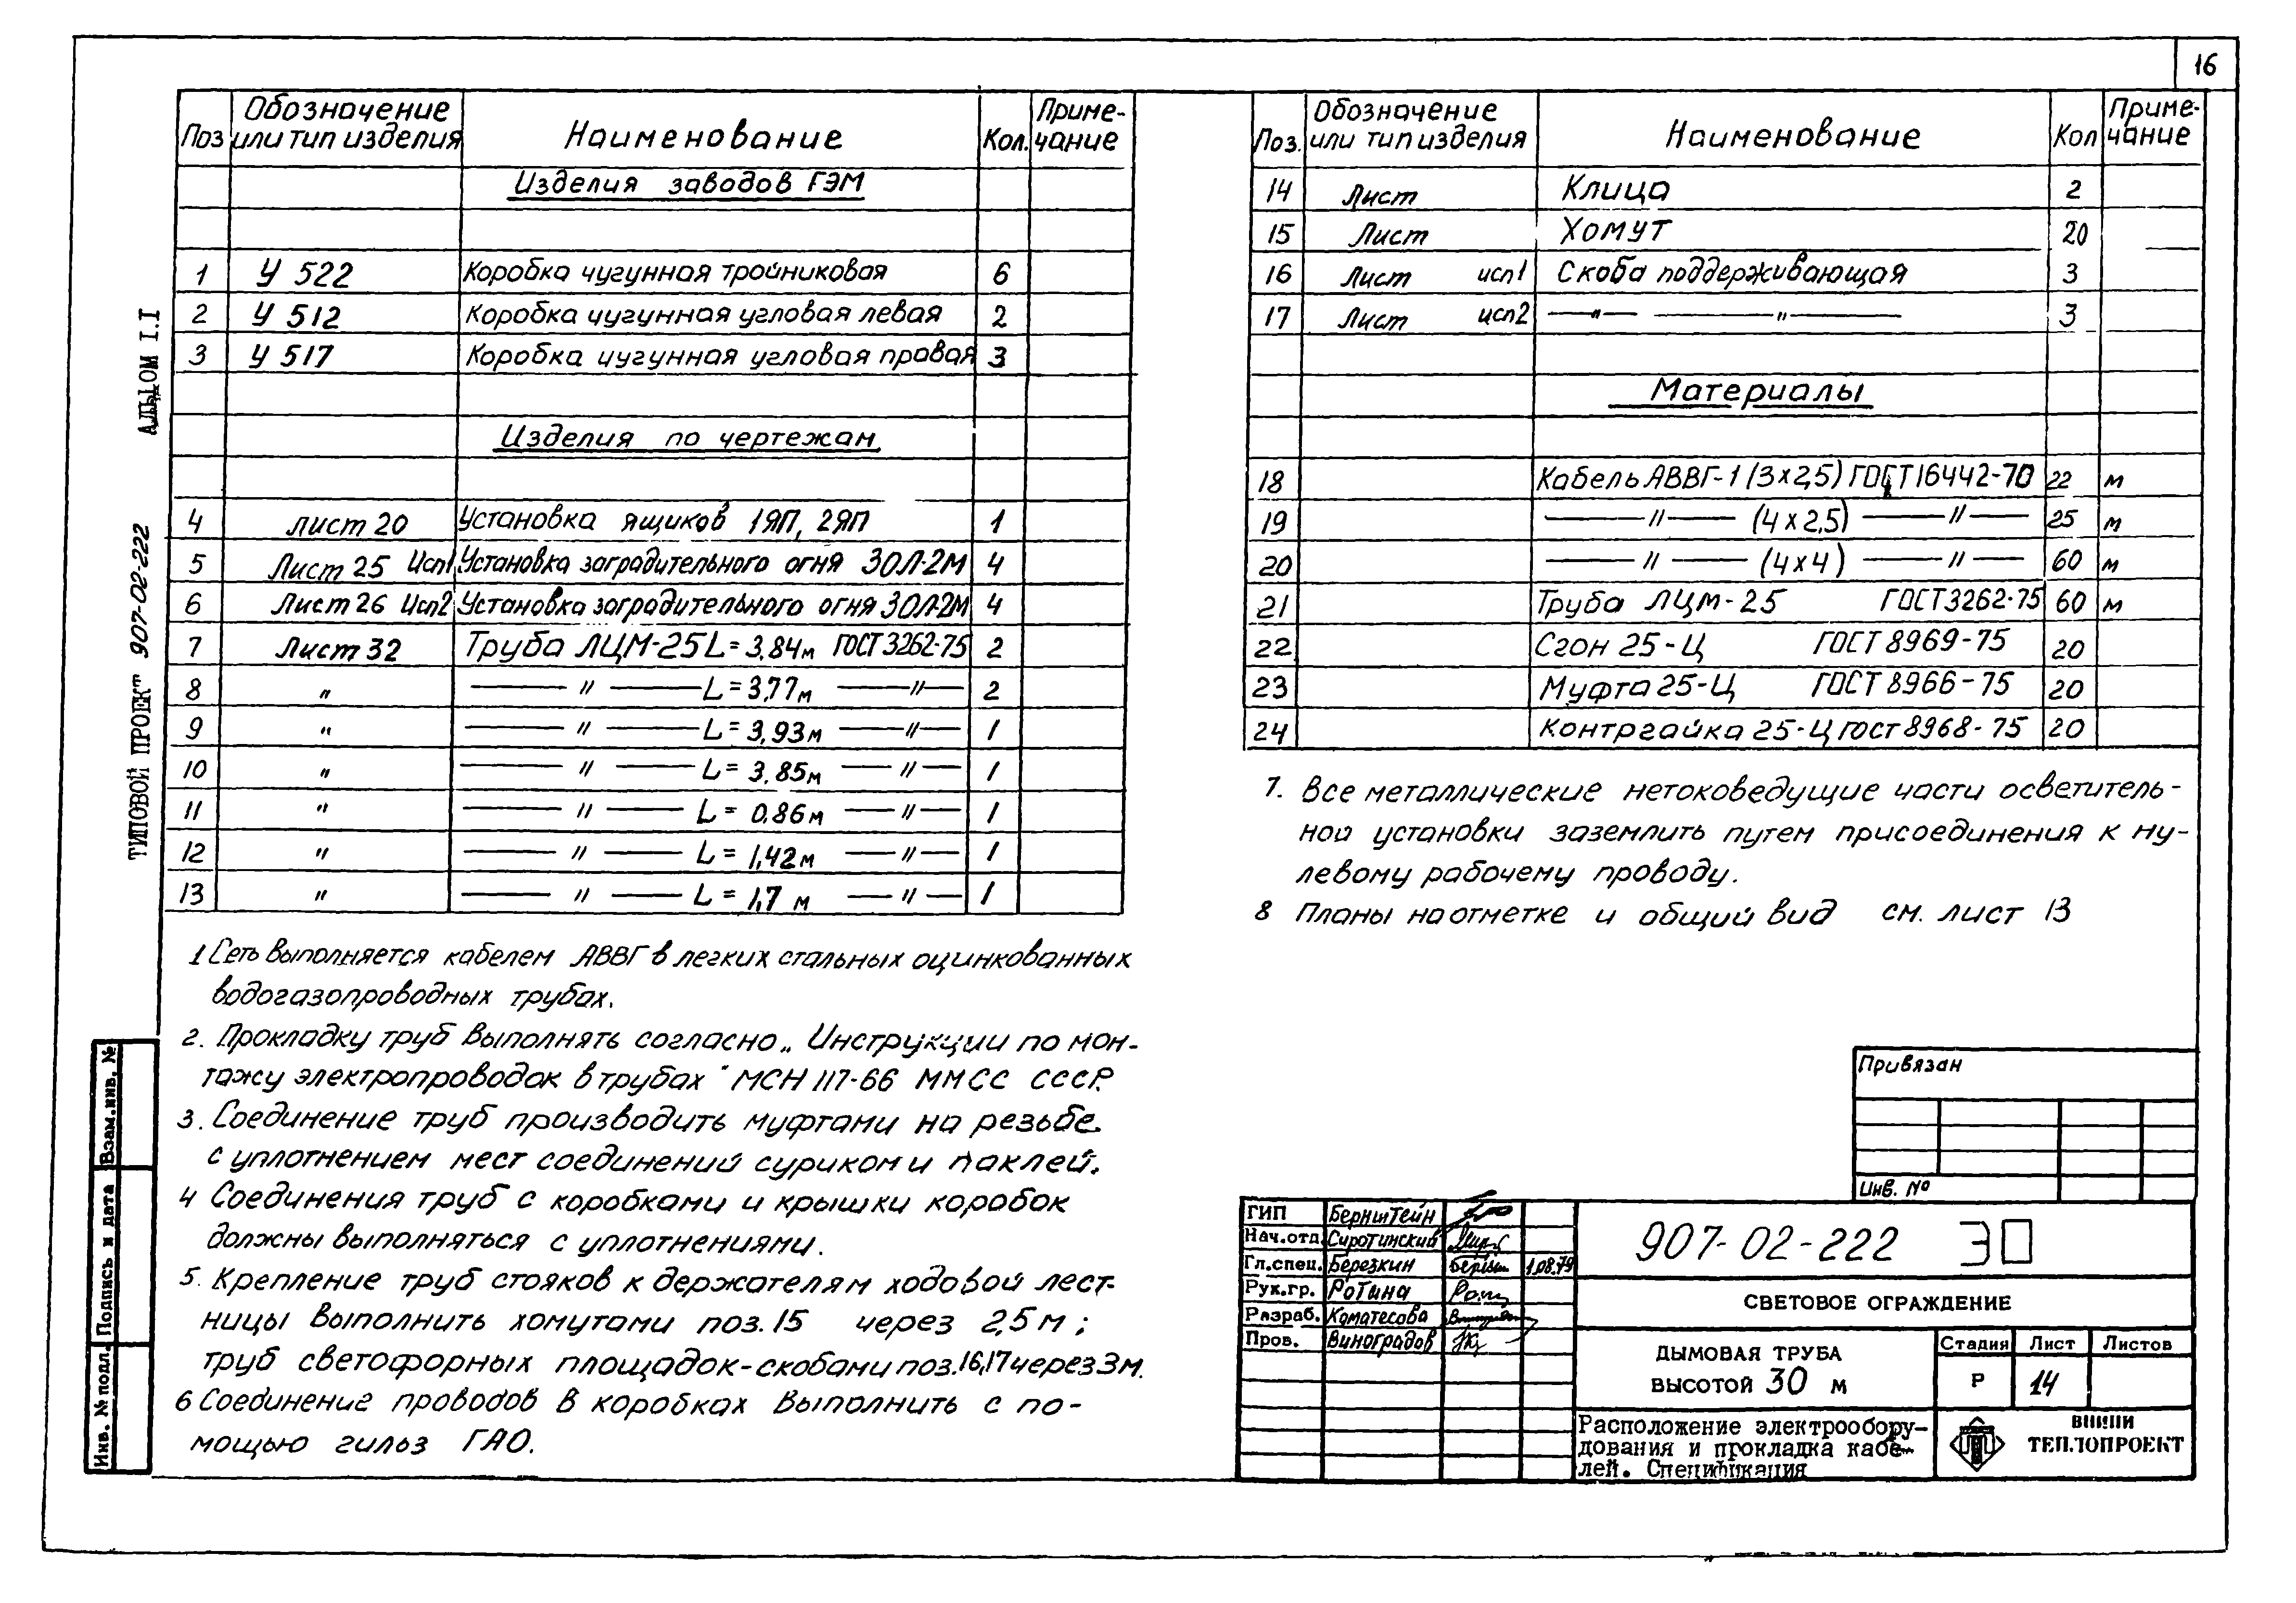 16
Поз Обозначение или тип изделия Наименование Кол. Приме-чание
Изделия заводов ГЭМ
1 У 522 Коробка чугунная тройниковая 6
2 У 512 Коробка чугунная угловая левая 2
3 У 517 Коробка чугунная угловая правая 3
Изделия по чертежам
4 лист 20 Установка ящиков 1ЯП, 2ЯП 1
5 Лист 25 Исп1 Установка заградительного огня ЗОЛ-2М 4
6 Лист 26 Исп2 Установка заградительного огня ЗОЛ-2М 4
7 Лист 32 Труба ЛЦМ-25 L=3,84м ГОСТ 3262-75 2
8 " — " — L=3,77м — " — 2
9 " — " — L=3,93м — " — 1
10 " — " — L=3,85м — " — 1
11 " — " — L=0,86м — " — 1
12 " — " — L=1,42м — " — 1
13 " — " — L=1,7 м — " — 1
1 Сеть выполняется кабелем АВВГ в легких стальных оцинкованных
водогазопроводных трубах.
2. Прокладку труб выполнять согласно „Инструкции по мон-
тажу электропроводок в трубах" МСН 117-66 ММСС СССР.
3. Соединение труб производить муфтами на резьбе
с уплотнением мест соединений суриком и паклей.
4 Соединения труб с коробками и крышки коробок
должны выполняться с уплотнениями.
5. Крепление труб стояков к держателям ходовой лест-
ницы выполнить хомутами поз.15 через 2,5м;
труб светофорных площадок-скобами поз.16,17 через 3м.
6 Соединение проводов в коробках выполнить с по-
мощью гильз ГАО.
Поз. Обозначение или тип изделия Наименование Кол Приме-чание
14 Лист Клица 2
15 Лист Хомут 20
16 Лист исп1 Скоба поддерживающая 3
17 Лист исп2 — " — — " — 3
Материалы
18 Кабель АВВГ-1 (3х2,5) ГОСТ 16442-70 22 м
19 — " — (4х2,5) — " — 25 м
20 — " — (4х4) — " — 60 м
21 Труба ЛЦМ-25 ГОСТ 3262-75 60 м
22 Сгон 25-Ц ГОСТ 8969-75 20
23 Муфта 25-Ц ГОСТ 8966-75 20
24 Контргайка 25-Ц ГОСТ 8968-75 20
7. Все металлические нетоковедущие части осветитель-
ной установки заземлить путем присоединения к ну-
левому рабочему проводу.
8 Планы на отметке и общий вид см. лист 13
Привязан
Инв. №
ГИП Бернштейн
Нач.отд. Сиротинский
Гл.спец. Березкин 1.08.79
Рук.гр. Ротина
Разраб. Коматесова
Пров. Виноградов
907-02-222 ЭО
СВЕТОВОЕ ОГРАЖДЕНИЕ
ДЫМОВАЯ ТРУБА
ВЫСОТОЙ 30 М
Стадия Лист Листов
Р 14
Расположение электрообору-
дования и прокладка кабе-
лей. Спецификация
ВНИПИ
ТЕПЛОПРОЕКТ
ТИПОВОЙ ПРОЕКТ 907-02-222 АЛЬБОМ I.I
Инв. № подл. Подпись и дата Взам.инв. №